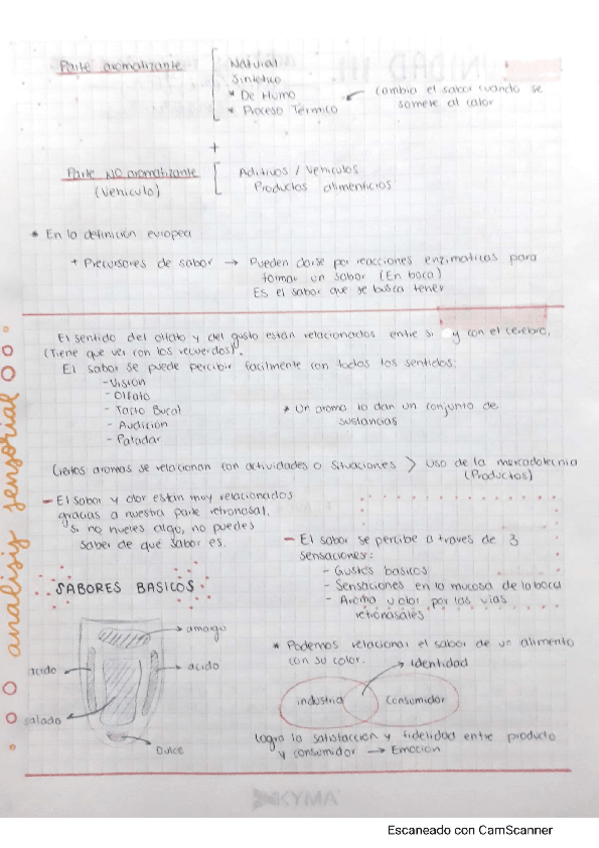 Parte aromatizante
Natural
Sintetico
* De Humo
* Proceso Térmico
Cambia el sabor cuando se
somete al calor
+
Parte NO aromatizante
(Vehiculo)
Aditivos / Vehiculos
Productos alimenticios
* En la definición europea
+ Precursores de sabor → Pueden darse por reacciones enzimaticas para
formar un sabor (En boca)
Es el sabor que se busca tener
El sentido del olfato y del gusto están relacionados entre si y con el cerebro,
(Tiene que ver con los recuerdos).
El sabor se puede percibir facilmente con todos los sentidos:
- Vision
- Olfato
- Tacto Bucal
- Audición
- Paladar
* Un aroma lo dan un conjunto de
sustancias
Ciertos aromas se relacionan con actividades o situaciones > Uso de la mercadotecnia
(Productos)
- El sabor y olor están muy relacionados
gracias a nuestra parte retronasal,
si no hueles algo, no puedes
saber de qué sabor es.
- El sabor se percibe a traves de 3
sensaciones:
- Gustos basicos
- Sensaciones en la mucosa de la boca
- Aroma u olor por las vias
retronasales
analisiy sensorial
SABORES BASICOS
amargo
acido
acido
salado
Dulce
* Podemos relacionar el sabor de un alimento
con su color.
→ Identidad
industria
Consumidor
Logra la satisfacción y fidelidad entre producto
y consumidor → Emocion
KYMA
Escaneado con CamScanner